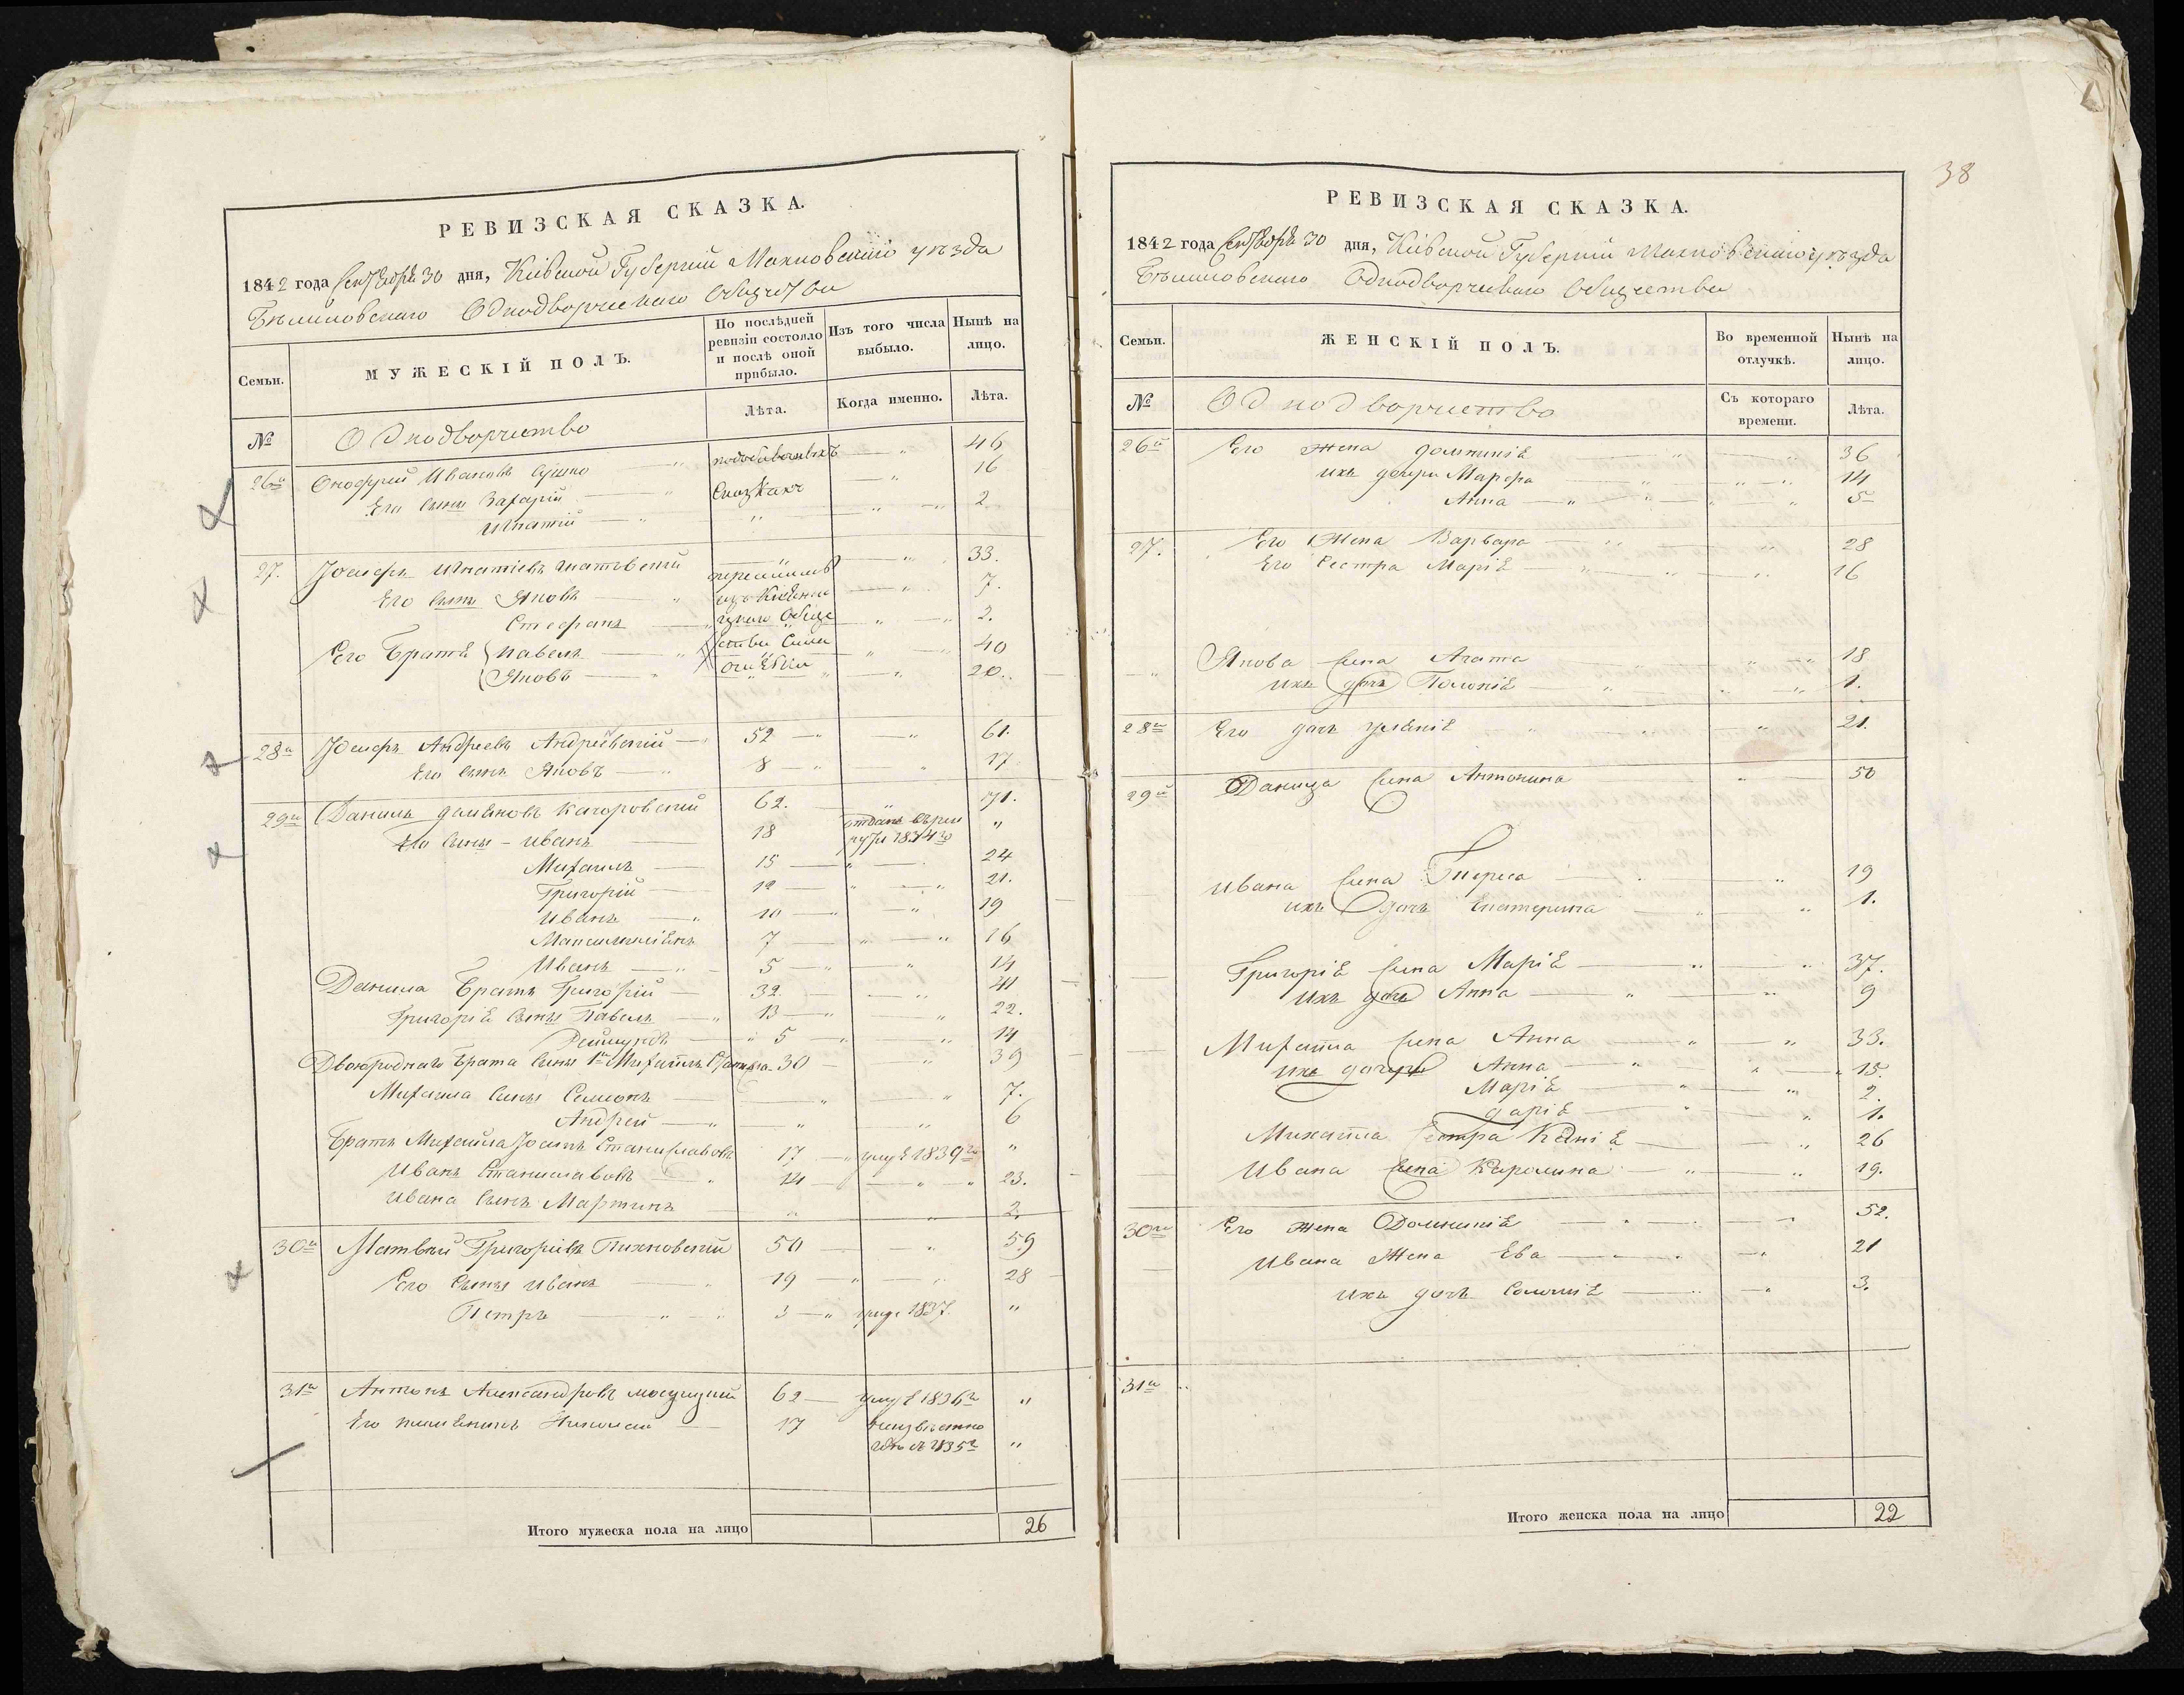 РЕВИЗСКАЯ СКАЗКА.
1842 года Сентября 30 дня, Кіевской Губерніи Махновскаго уѣзда
Бѣлиловскаго Однодворческаго Общества
Семьи.
МУЖЕСКІЙ ПОЛЪ.
По послѣдней ревизіи состояло и послѣ оной прибыло.
Изъ того числа выбыло.
Нынѣ на лицо.
№
Однодворчество
Лѣта.
Когда именно.
Лѣта.
26й Онофрей Ивановъ Сушко " 46
Его сыны Захарій — " — " 16
Игнатій — " " — " — " 2
27. Іосифъ Игнатіевъ — " 33.
Его сынъ Яковъ — " — " 7.
Стефанъ — " — " 2.
Его Братя Павелъ — " — " 40
Яковъ — " — " 20.
28й Іосифъ Андреевъ Андріевскій — 52 — " — " 61.
Его сынъ Яковъ — " 8 — " — 17
29й Данилъ Качоровскій 62. " 71.
Его сыны - Иванъ — 18 отданъ 1834го "
Михаилъ — 15 — " — 24
Григорій — 12 — " — " 21.
Иванъ — " 10 — " — " 19
7 — " — " 16
Иванъ — " 5 — " — " 14
Данила Братъ Григорій — 32 — " 41
Григорія сыны Павелъ — " 13 — " " 22.
" 5 — " — " 14
Двоюроднаго брата сыны 1й Михаилъ 30 — " 39
Михаила сыны Семионъ — " — " 7.
Андрей — " " " 6
Братъ Михаила Іосифъ Станиславовъ 17 — " 1839го "
Иванъ Станиславовъ — " 14 — " — " 23.
Ивана сынъ Мартинъ — " " 2.
30й Матвѣй Григоріевъ Пихновскій 50 — " 59
Его сыны Иванъ — " 19 — " " 28
Петръ — " — " 3 — " 1837. "
31й Антонъ Александровъ 62 — 1836го "
Его племеникъ Николай — 17 неизвѣстно
гдѣ съ 1835г "
Итого мужеска пола на лицо 26
38
РЕВИЗСКАЯ СКАЗКА.
1842 года Сентября 30 дня, Кіевской Губерніи Махновскаго уѣзда
Бѣлиловскаго Однодворческаго Общества
Семьи.
ЖЕНСКІЙ ПОЛЪ.
Во временной отлучкѣ.
Нынѣ на лицо.
№
Однодворчество
Съ котораго времени.
Лѣта.
26й Его жена Доминикія — " — " 36
ихъ дочери Марфа — " — " — " 14
Анна — " — " — " " 5
27. Его Жена Варвара — " — " 28
Его Сестра Марія — " — " — " 16
Якова жена Агата — " — " 18
ихъ дочь Полонія — " — " " 1.
28й Его дочь — " — " — " 21.
29й Данила жена Антонина — " 50
Ивана жена Тереса — " — " 19
ихъ дочь Екатерина — " — " 1.
Григорія жена Марія — " — " 37.
ихъ дочь Анна — " — " 9
Михаила жена Анна — " — " 33.
ихъ дочери Анна — " — " — " 15.
Марія — " — " 2.
Дарія — " — " 1.
Михаила сестра — " 26
Ивана жена Каролина — " — " 19.
30й Его жена Доминикія — " — " 52.
Ивана Жена Ева — " — " 21
ихъ дочь — " — " 3.
31й "
Итого женска пола на лицо 22